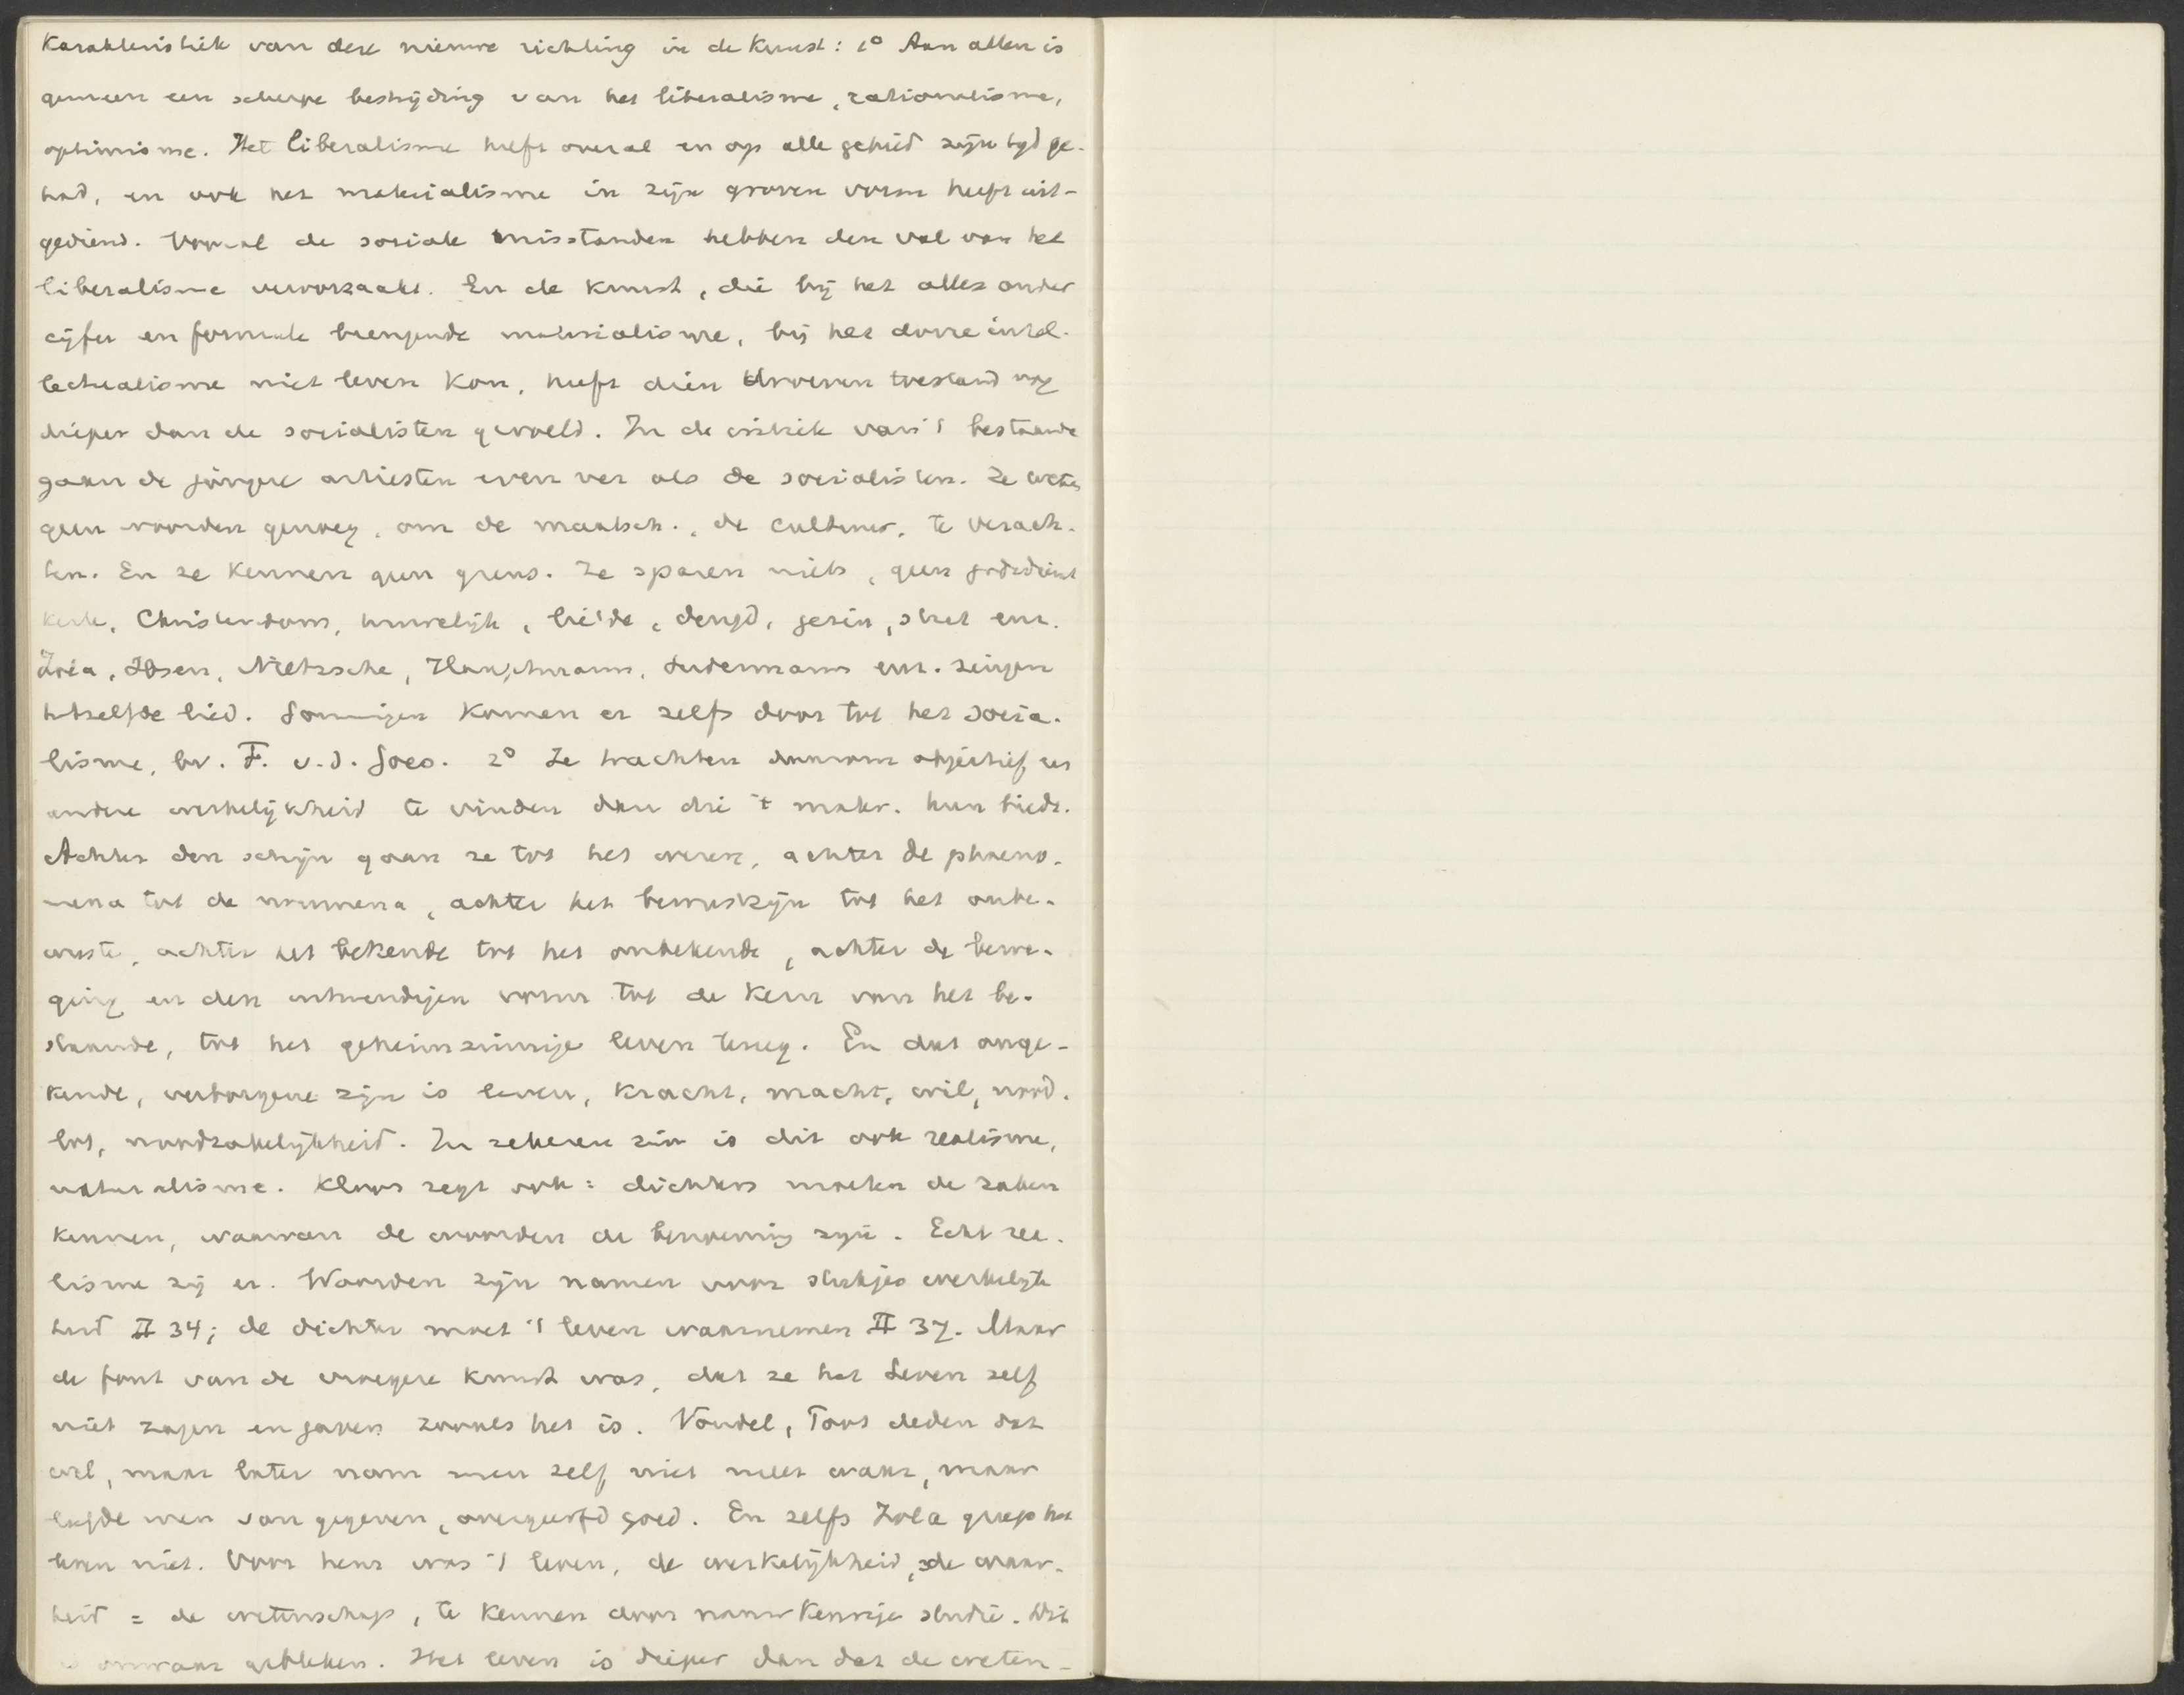 Karakteristiek van deze nieuwe richting in de Kunst: 1° Aan allen is
gemeen een scherpe bestrijding van het liberalisme, rationalisme,
optimisme. Het liberalisme heeft overal en op alle gebied zijn tijd ge-
had, en ook het materialisme in zijn groven vorm heeft uit-
gediend. Vooral de sociale misstanden hebben den val van het
liberalisme veroorzaakt. En de Kunst, die bij het alles onder
cijfer en formule brengende materialisme, bij het dorre intel-
lectualisme niet leven kon, heeft dien droeven toestand nog
dieper dan de socialisten gevoeld. In de critiek van 't bestaande
gaan de jongere artiesten even ver als de socialisten. Ze weten
geen woorden genoeg, om de maatsch., de cultuur, te verach-
ten. En ze kennen geen grens. Ze sparen niets, geen godsdienst
kerk, Christendom, huwelijk, liefde, deugd, gezin, staat enz.
Zola, Ibsen, Nietzsche, Hauptmann, Sudermann enz. zingen
hetzelfde lied. Sommigen komen er zelfs door tot het socia-
lisme, bv. F. v. d. Goes. 2° Ze trachten daarom objectief een
andere werkelijkheid te vinden dan die 't mater. hun biedt.
Achter den schijn gaan ze tot het wezen, achter de phaeno-
mena tot de noumena, achter het bewustzijn tot het onbe-
wuste, achter het bekende tot het onbekende, achter de bewe-
ging en den uitwendigen vorm tot de kern van het be-
staande, tot het geheimzinnige leven terug. En dat onge-
kende, verborgene zijn is leven, kracht, macht, wil, nood-
lot, noodzakelijkheid. In zekeren zin is dit ook realisme,
naturalisme. Kloos zegt ook: dichters moeten de zaken
kennen, waarvan de woorden de benoeming zijn. Echt rea-
lisme zij er. Woorden zijn namen voor stukjes werkelijk
heid II 34; de dichter moet 't leven waarnemen II 37. Maar
de fout van de vroegere kunst was, dat ze het Leven zelf
niet zagen en gaven zooals het is. Vondel, Toos deden dat
wel, maar later nam men zelf niet meer waar, maar
leefde men van gegeven, overgeërfd goed. En zelfs Zola greep het
leven niet. Voor hem was 't leven, de werkelijkheid, de waar-
heid = de wetenschap, te kennen door nauwkeurige studie. Dit
is onwaar gebleken. Het leven is dieper dan dat de weten-